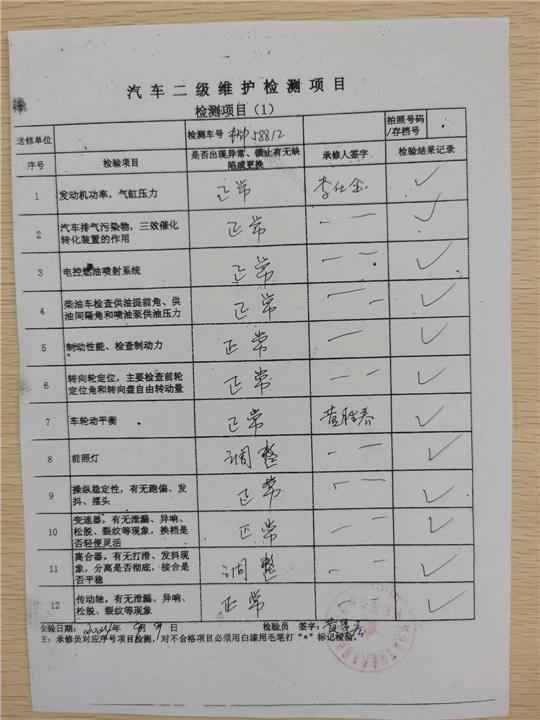 汽车二级维护检测项目
检测项目（1）
送修单位 检测车号 58812 拍照号码/存档号
序号 检验项目 是否出现异常、锁止有无缺陷或更换 承修人签字 检验结果记录
1 发动机功率，气缸压力 正常 ✓
2 汽车排气污染物，三效催化转化装置的作用 正常 — — ✓
3 电控燃油喷射系统 正常 — — ✓
4 柴油车检查供油提前角、供油间隔角和喷油泵供油压力 正常 — — ✓
5 制动性能、检查制动力 正常 — — ✓
6 转向轮定位，主要检查前轮定位角和转向盘自由转动量 正常 — — ✓
7 车轮动平衡 正常 ✓
8 前照灯 调整 — — ✓
9 操纵稳定性，有无跑偏、发抖、摆头 正常 — — ✓
10 变速器，有无泄漏、异响、松脱、裂纹等现象，换档是否轻便灵活 正常 — — ✓
11 离合器。有无打滑、发抖现象，分离是否彻底，接合是否平稳 调整 — — ✓
12 传动轴。有无泄漏、异响、松脱、裂纹等现象 正常 — — ✓
验日期： 年 月 9 日 检验员 签字：
主：承修员对应序号项目检测，对不合格项目必须用白漆用毛笔打“×”标记检验。